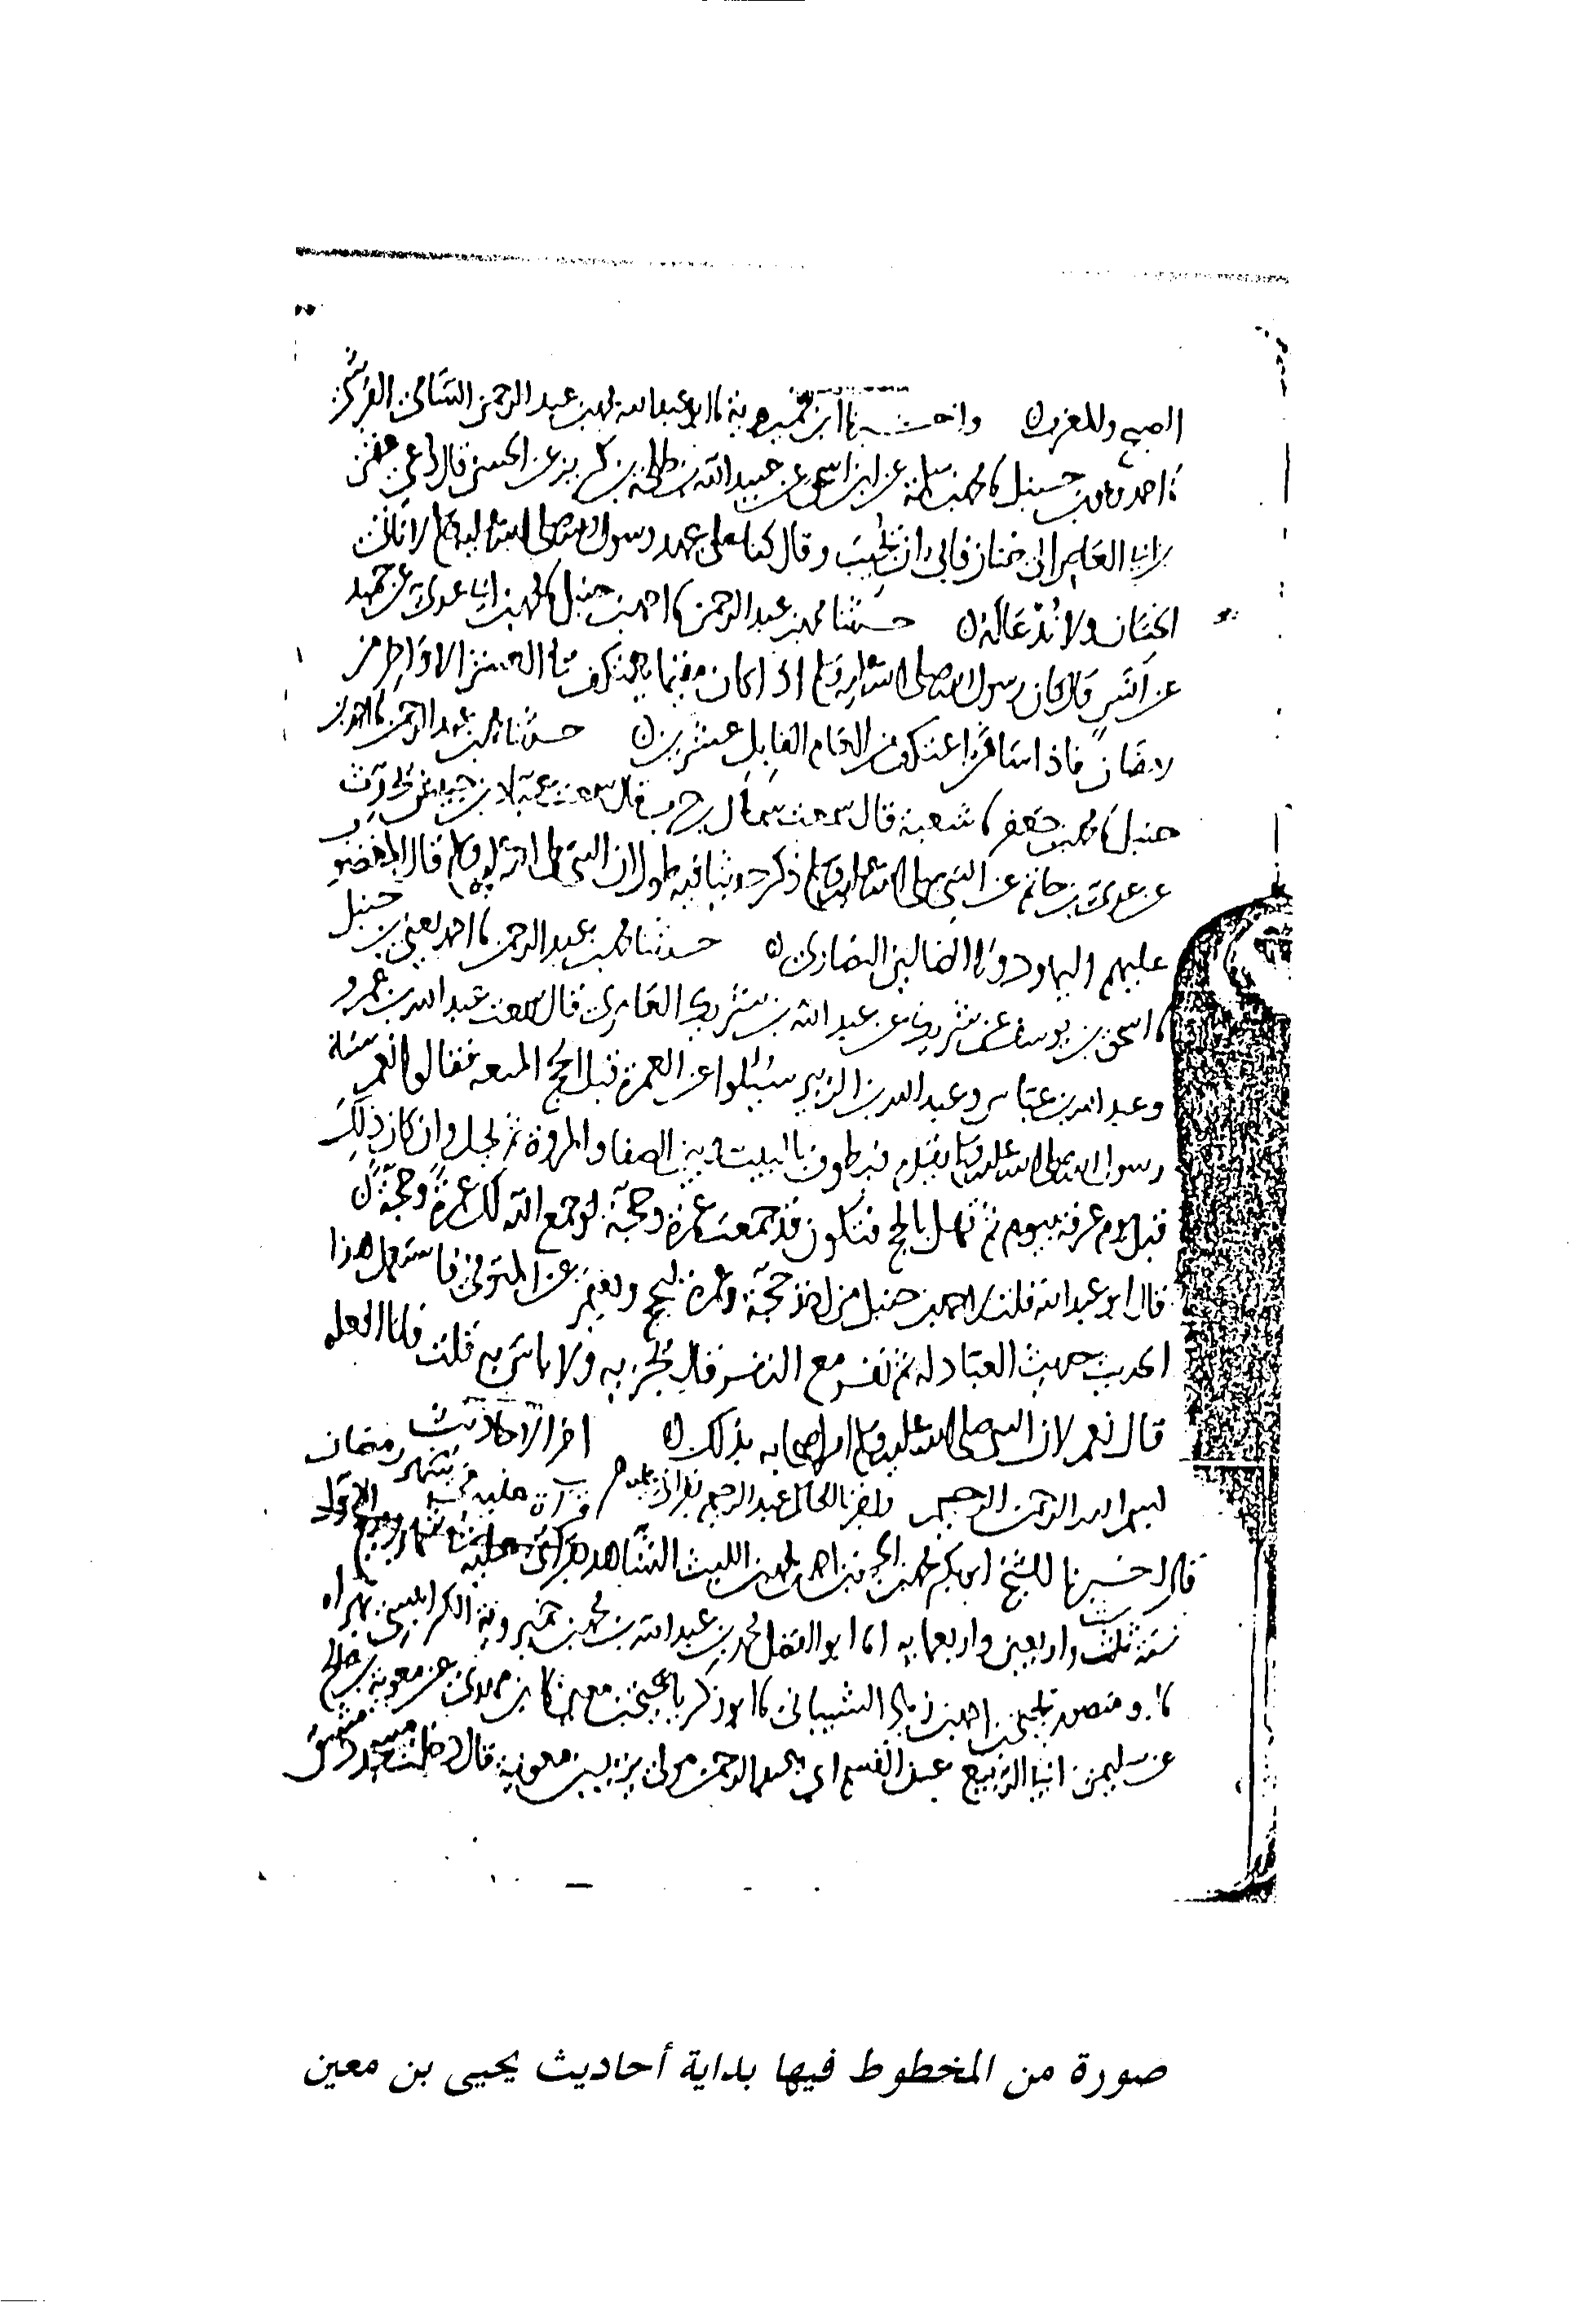 الصبح وللمغرب ه واخبرنا ابن خميرويه نا ابو عبد الله محمد بن عبد الرحمن السامي القرشي
نا احمد بن محمد بن حنبل نا محمد بن سلمة عن ابن اسحق عن عبيد الله بن طلحة بن كريز عن الحسن قال دعي عثمن
بن ابي العاص الى ختان فابى ان يجيب وقال كنا على عهد رسول الله صلى الله عليه وسلم لا ناتي
الختان ولا ندعا له ه حدثنا محمد بن عبد الرحمن نا احمد بن حنبل نا محمد بن ابي عدي عن حميد
عن انس قال كان رسول الله صلى الله عليه وسلم اذا كان مقيما يعتكف العشر الاواخر من
رمضان فاذا سافر اعتكف من العام القابل عشرين ه حدثنا محمد بن عبد الرحمن نا احمد بن
حنبل نا محمد بن جعفر نا شعبة قال سمعت سماك بن حرب قال سمعت عباد بن حبيش يحدث
عن عدي بن حاتم عن النبي صلى الله عليه وسلم ذكر حديثا فيه طول ان النبي صلى الله عليه وسلم قال المغضوب
عليهم اليهود ولا الضالين النصارى ه حدثنا محمد بن عبد الرحمن نا احمد يعني بن حنبل
نا اسحق بن يوسف عن شريك عن عبد الله بن شريك العامري قال سمعت عبد الله بن عمرو
وعبد الله بن عباس وعبد الله بن الزبير سئلوا عن العمرة قبل الحج المتعه فقالوا نعم سنة
رسول الله صلى الله عليه وسلم تقدم فتطوف بالبيت وبين الصفا والمروة ثم تحل وان كان ذلك
قبل يوم عرفة بيوم ثم تهل بالحج فتكون قد جمعت عمرة وحجة او جمع الله لك عمرة وحجة ه
قال ابو عبد الله قلت لاحمد بن حنبل من اخذ حجة وعمرة ليحج ويعتمر عن المتوفى فاستعمل هذا
الحديث حديث العبادلة قال يجزيه ولا باس به قلت
قال نعم لان النبي صلى الله عليه وسلم امر اصحابه بذلك ه اخر الاحاديث
بسم الله الرحمن الرحيم قراة عليه في شهر رمضان
قال اخبرنا الشيخ ابو بكر محمد بن احمد بن محمد بن الليث الشاهد
سنة ثلث واربعين واربعمايه انا ابو الفضل محمد بن عبد الله بن محمد بن خميرويه الكرابيسي بهراه
نا ابو منصور يحيى بن احمد بن زياد الشيباني نا ابو زكريا يحيى بن معين نا بن مهدي عن معوية بن صالح
عن سليمن ابي الربيع عن القسم ابي عبد الرحمن مولى يزيد بن معوية قال دخلت مسجد دمشق
صورة من المخطوط فيها بداية أحاديث يحيى بن معين